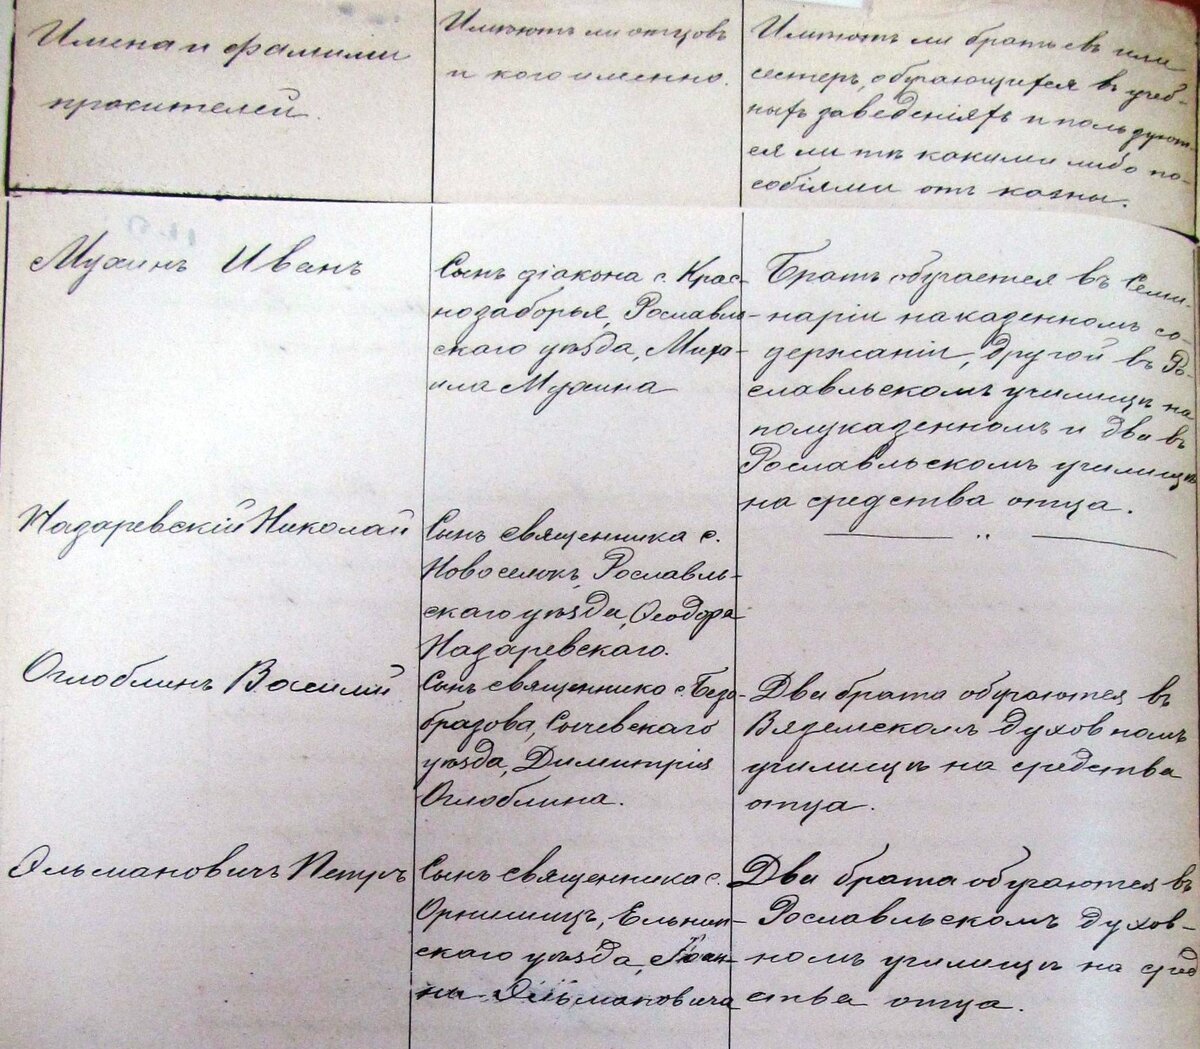 Имена и фамилии
просителей.
Имѣютъ ли отцовъ
и кого именно.
Имѣютъ ли братьевъ или
сестеръ, обучающихся въ учеб-
ныхъ заведеніяхъ и пользуют-
ся ли тѣ какими либо по-
собіями отъ казны.
Мухинъ Иванъ
Сынъ діакона с. Крас-
нозаборья, Рославль-
скаго уѣзда, Миха-
ила Мухина
Братъ обучается въ Семи-
наріи на казенномъ со-
держаніи, другой въ Ро-
славльскомъ училищѣ на
полуказенномъ и два въ
Рославльскомъ училищѣ
на средства отца.
Назаревскій Николай
Сынъ священника с.
Новоселокъ, Рославль-
скаго уѣзда, Ѳеодора
Назаревскаго.
— „ —
Оглоблинъ Василій
Сынъ священника с. Безо-
бразова, Сычевскаго
уѣзда, Димитрія
Оглоблина.
Два брата обучаются въ
Вяземскомъ духовномъ
училищѣ на средства
отца.
Ольмановичъ Петръ
Сынъ священника с.
Ельнин-
скаго уѣзда, Іоан-
на Ольмановича
Два брата обучаются въ
Рославльскомъ духов-
номъ училищѣ на сред
ства отца.